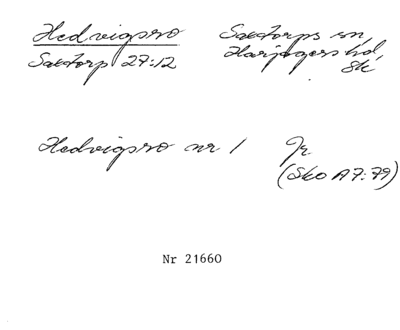 Hedvigsro
Saxtorps sn,
Saxtorp 27:12
Harjagers hd,
Sk
Hedvigsro nr 1
Jr
(SkO A7:79)
Nr 21660